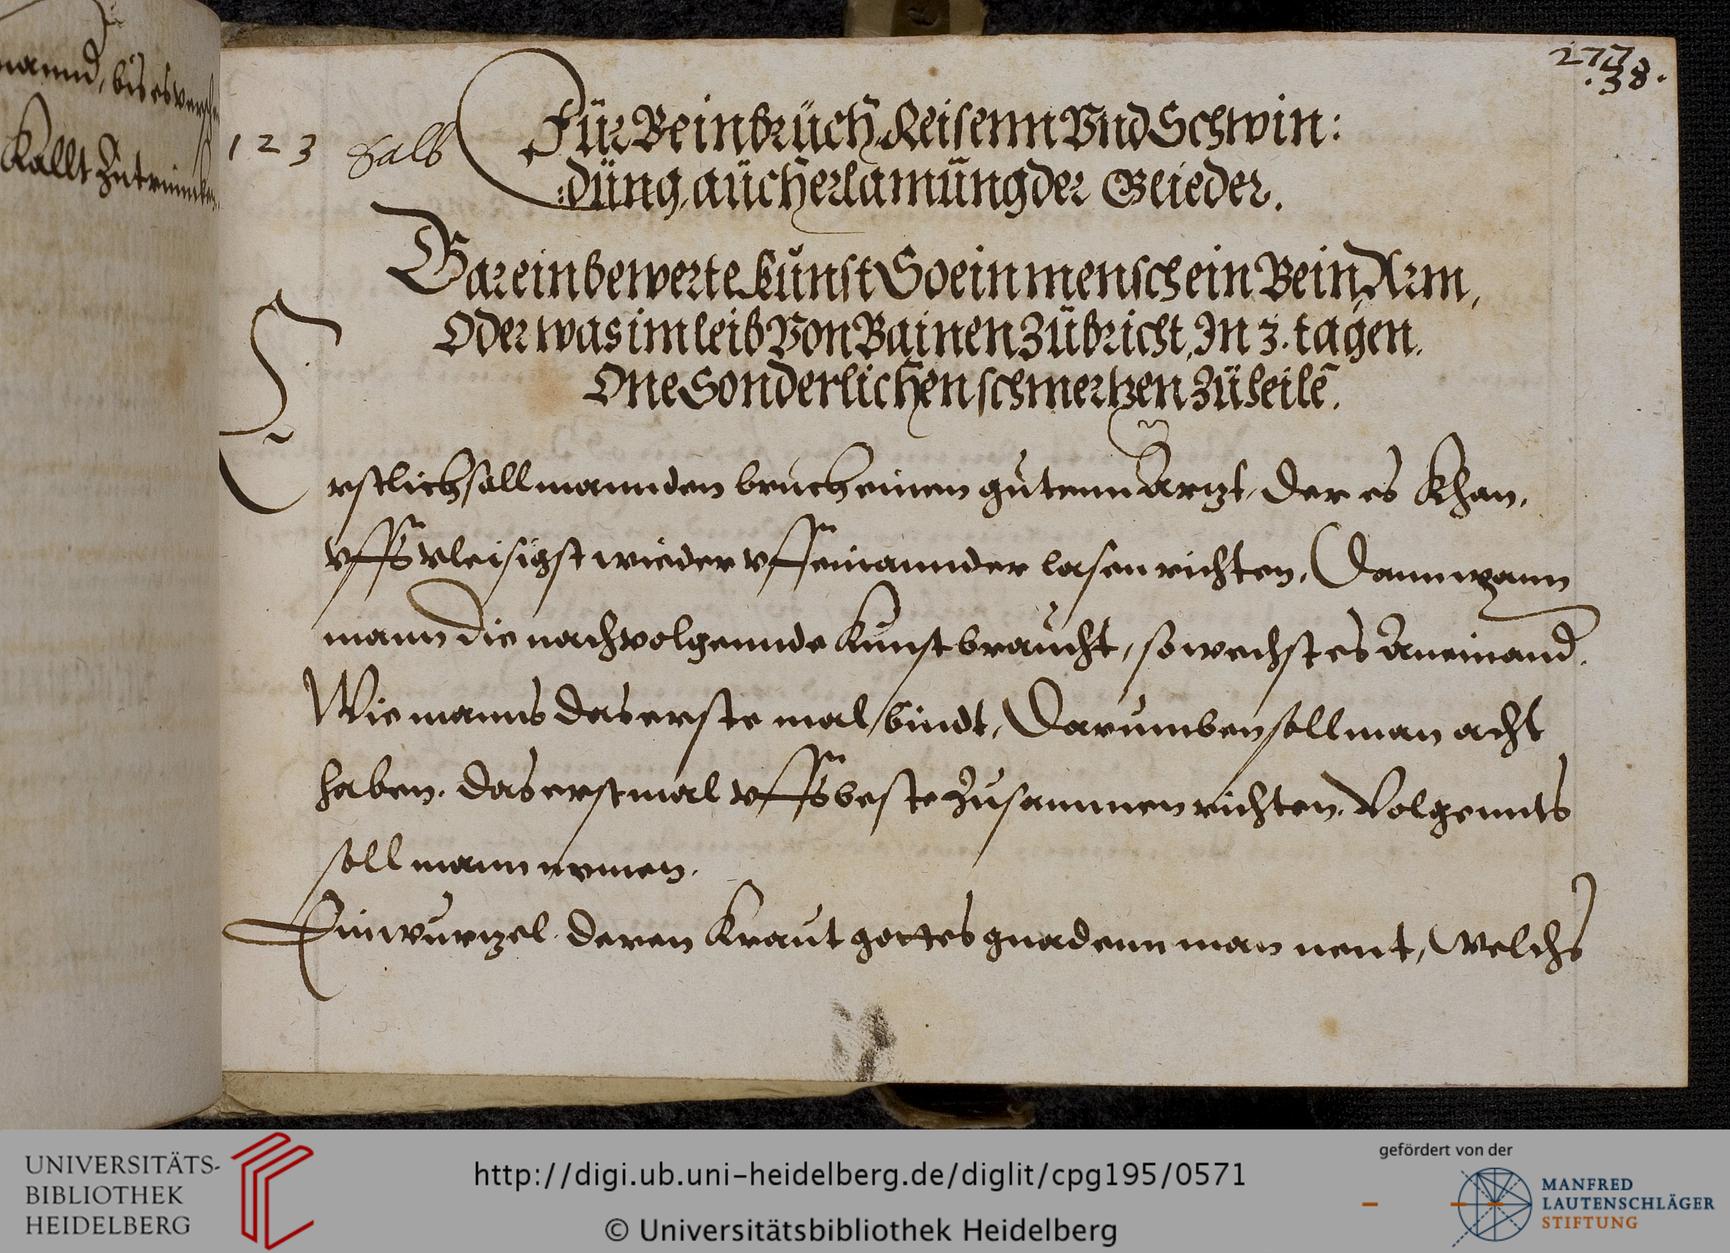 mannd, bis es
Kallt Zutrinnckhen
277
.38.
123 Salb
Für Beinbrüch, Reisenn Vnd Schwin:
:düng, aüch erlamüng der Glieder.
Gar ein bewerte kunst So ein mensch ein Bein, Arm,
Oder was im leib Von Bainen Zübricht, In 3. tagen.
One Sonderlichen schmertzen Zü heilē.
Erstlich soll mann den bruch einen gütenn Artzt, der es Khan,
vffs vleisigst wieder vff einannder lasen richten, Dann wann
mann die nachvolgennde Kunst braucht, so wechst es Aneinand.
Wie manns das erste mal bindt, Darumben soll man acht
haben, das erstmal vffs beste Zusammen richten. Volgennts
soll mann nemen.
Ein wurtzel deren Kraut gottes gnadenn man nent, Welchs
UNIVERSITÄTS-
BIBLIOTHEK
HEIDELBERG
http://digi.ub.uni-heidelberg.de/diglit/cpg195/0571
© Universitätsbibliothek Heidelberg
gefördert von der
MANFRED
LAUTENSCHLÄGER
STIFTUNG